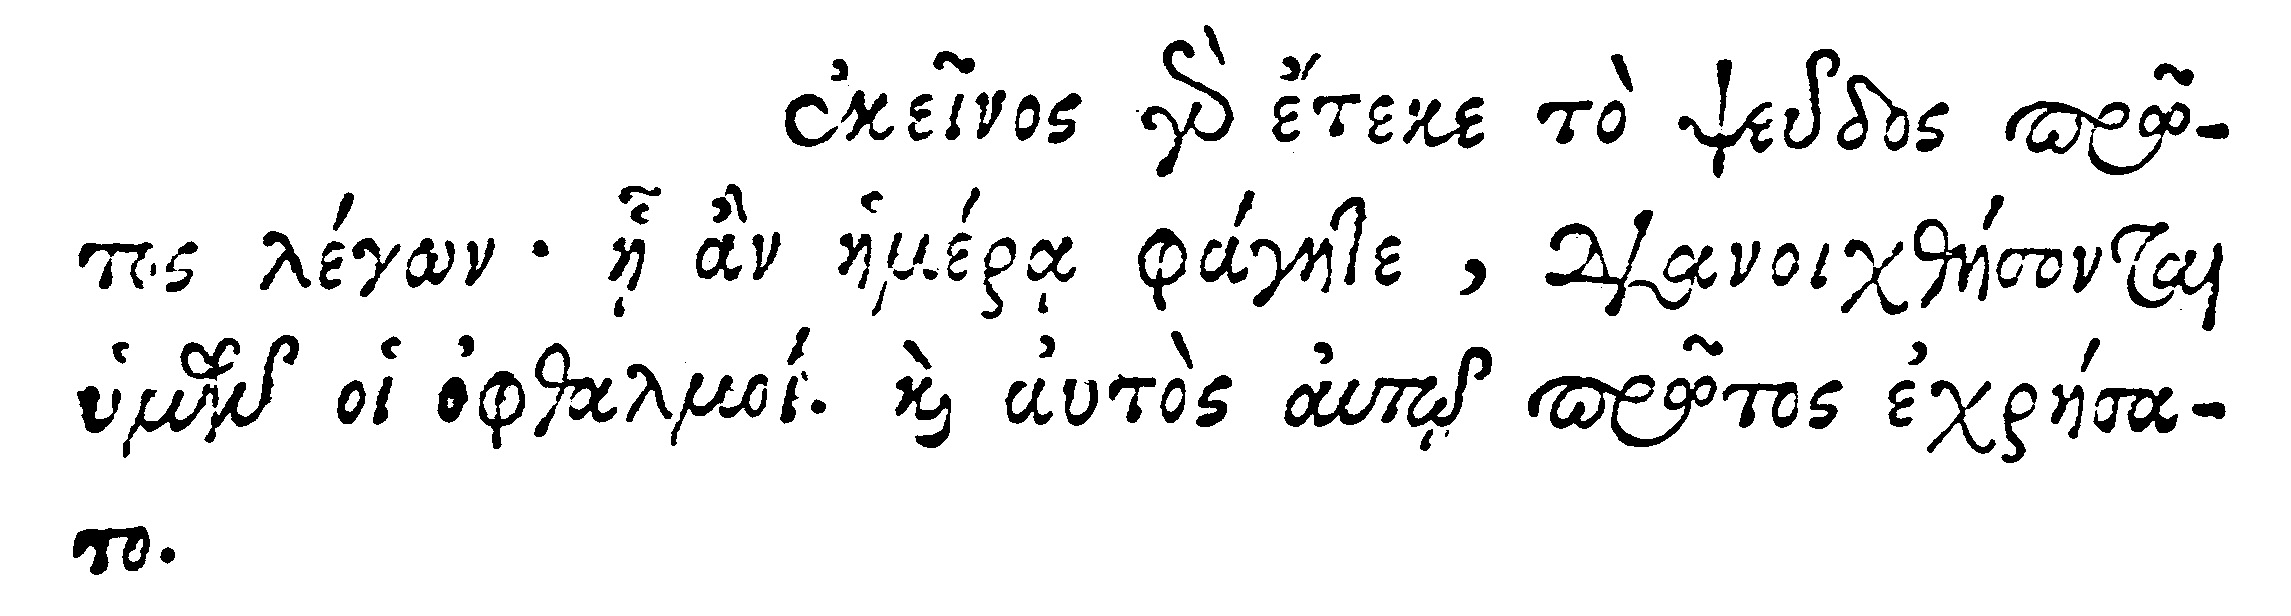 ἐκεῖνος γὰρ ἔτεκε τὸ ψεῦδος πρῶ-
τος λέγων· ᾗ ἂν ἡμέρᾳ φάγητε, διανοιχθήσονται
ὑμῶν οἱ ὀφθαλμοί. καὶ ἀυτὸς ἀυτῷ πρῶτος ἐχρήσα-
το.